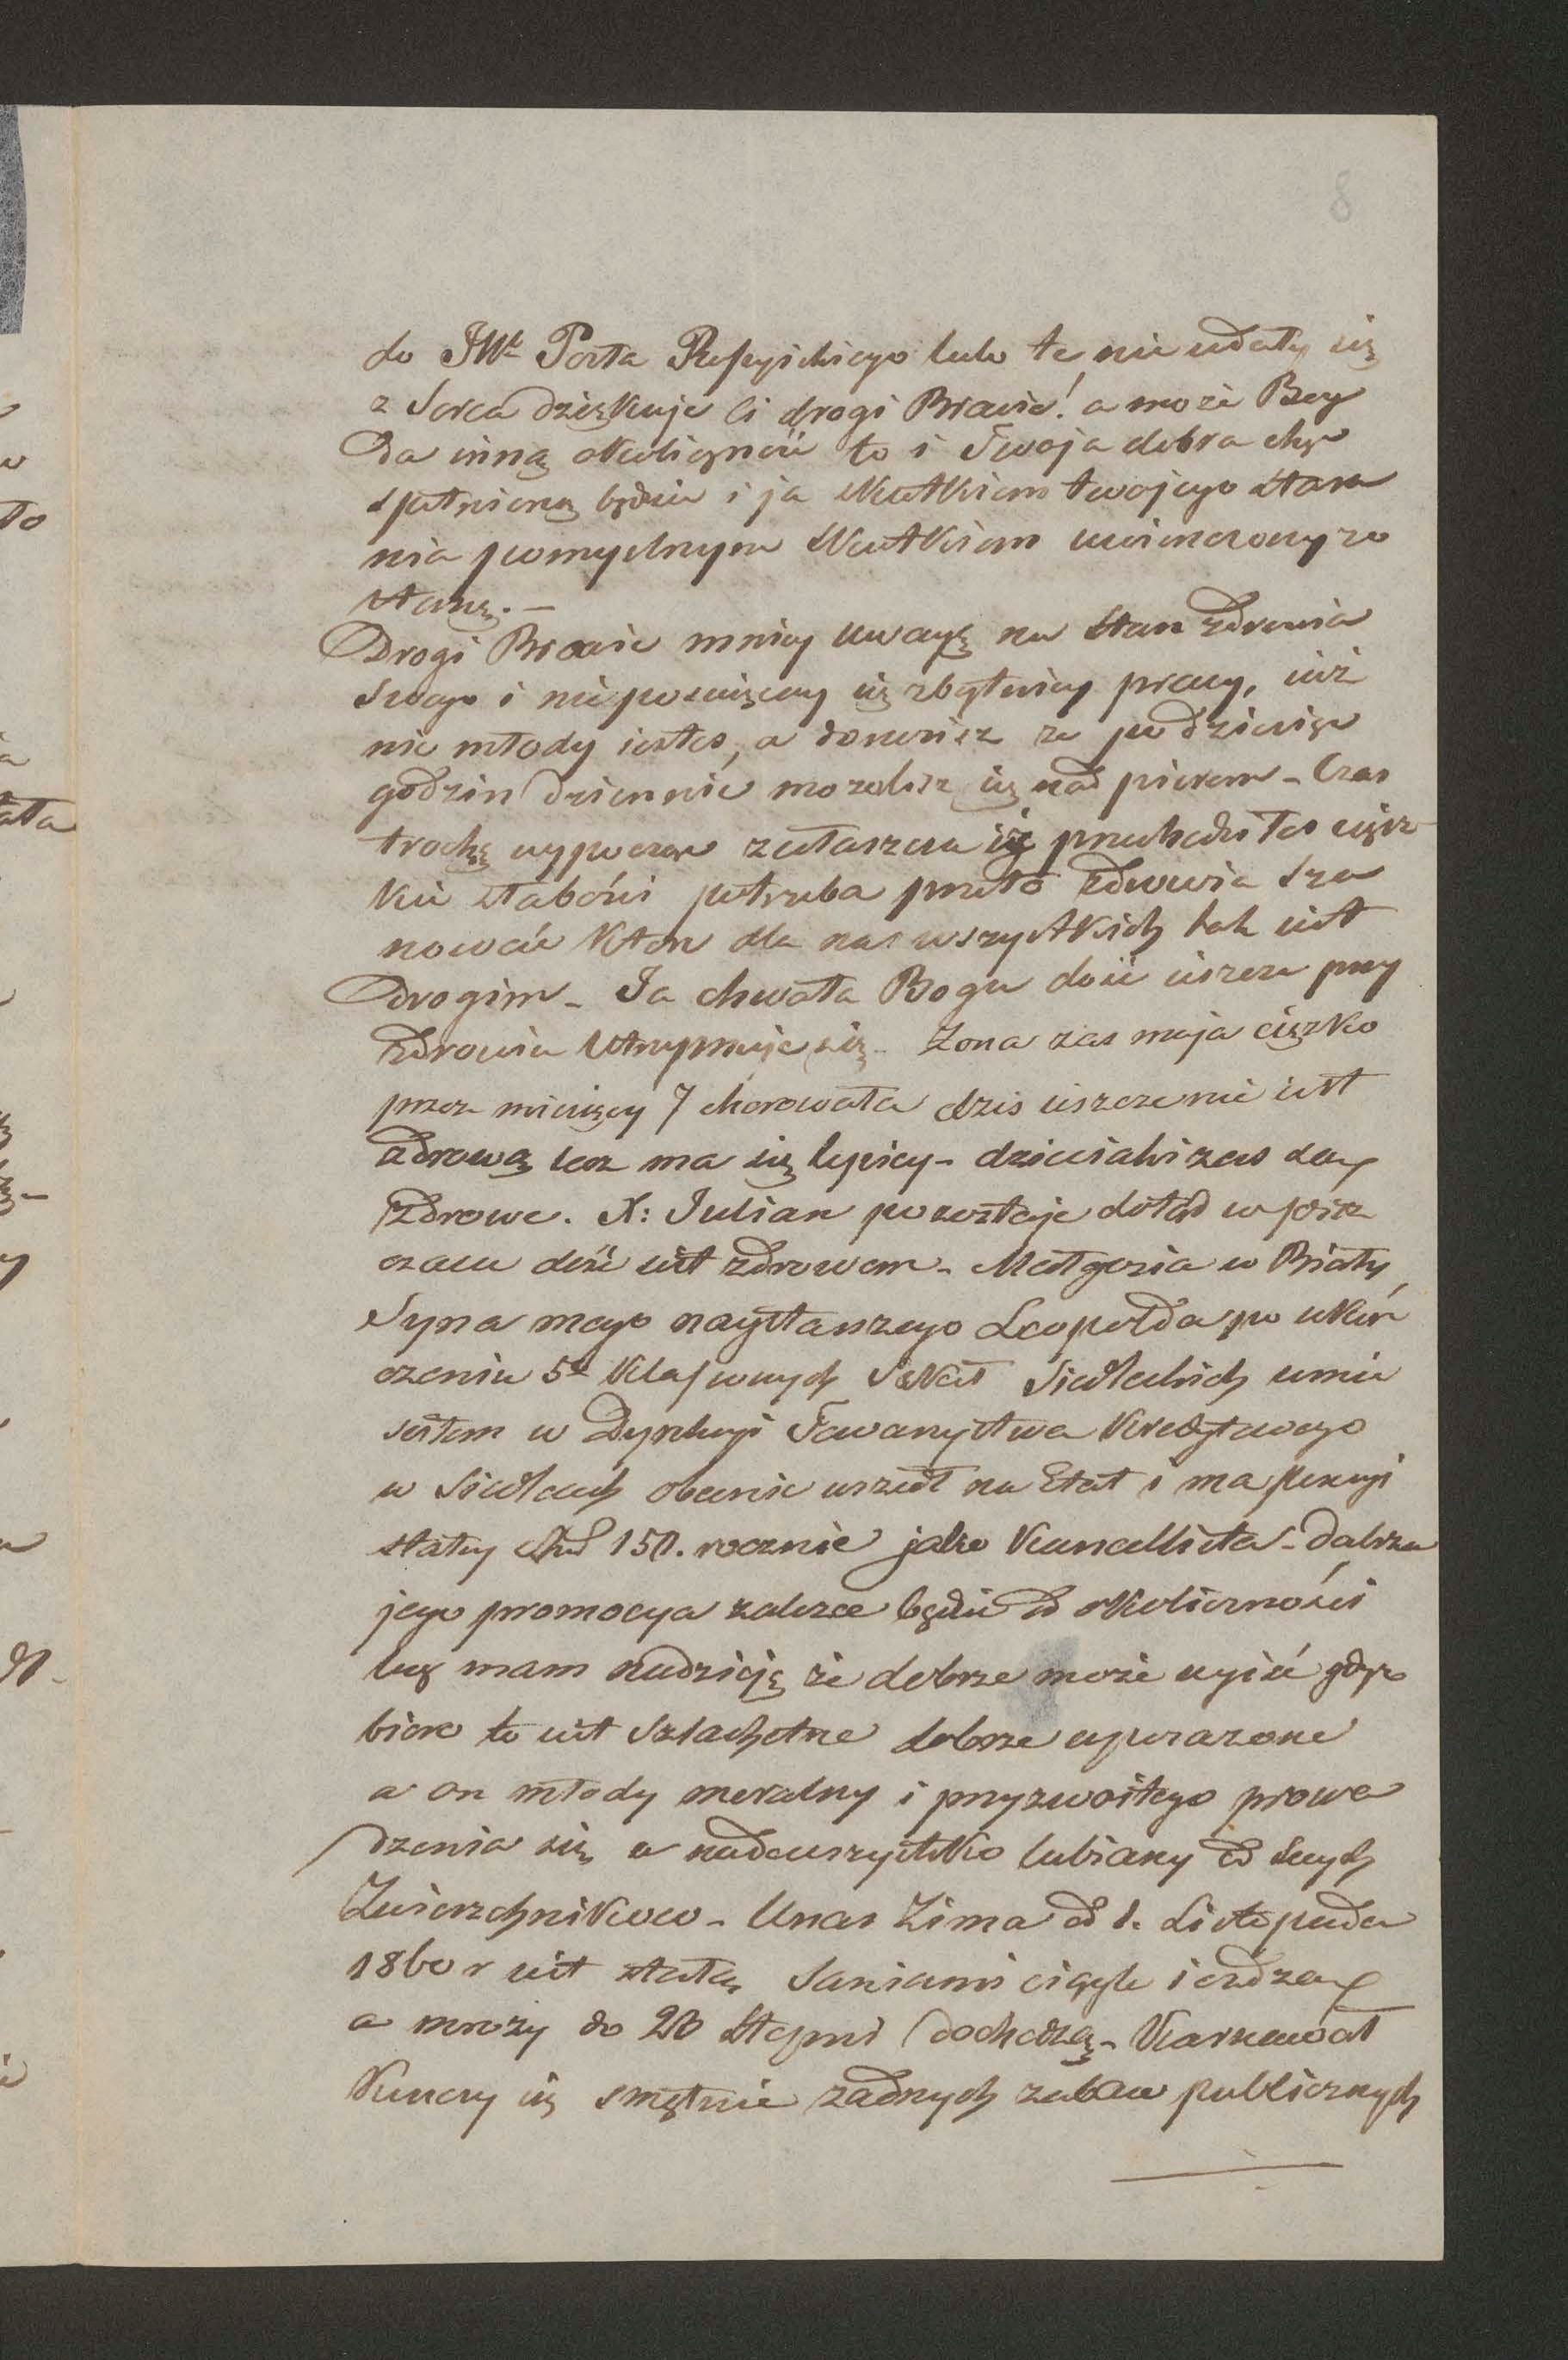 8
do JWo Posła Rossyiskiego lubo te nieudały się
z serca dziękuję Ci drogi Bracie! a może Bóg
Da inną okoliczność to i Twoja dobra chęć
spełnioną będzie i ja skutkiem twojego stara
nia pomyslnym skutkiem uwienczony zo
stanę. —
Drogi Bracie mniey uwagę na stan zdrowia
swego i nieposwięcay się zbytniey pracy, iuż
nie młody iestes, a donosisz że po dziewięć
godzin dziennie mozolisz się nad piórem – Czas
trochę wypocząć zwłaszcza iż przechodziłes cięż-
kie słabości potrzeba przeto zdrowia sza
nować które dla nas wszystkich tak iest
Drogim – Ja chwała Bogu dość ieszcze przy
zdrowiu utrzymuje się – Żona zas moja ciężko
przez miesięcy 7 chorowała dzis ieszcze nie iest
zdrową lecz ma się lepiey – dzieciaki zas są
zdrowe. X: Julian pozostaje dotąd w
czacu dość iest zdrowem – Małgosia w Biały
Syna mego naystarszego Leopolda po ukoń
czeniu 5u klassowych Szkół Siedleckich umie
sciłem w Dyrekcyi Towarzystwa Kredytowego
w Siedlcach obecnie wszedł na Etat i ma pensyi
stałey 150. rocznie jako Kancellista – dalsza
jego promocya zalezeć będzie od okoliczności
lecz mam nadzieję że dobrze może wyiść gdyż
biuro to iest szlachetne dobrze wyposazone
a on młody moralny i przyzwoitego prowa
dzenia się a nadewszystko lubiany od swych
Zwierzchników – Unas Zima od 1. Listopada
1860 r iest stałą Saniami ciągle ieżdzą
a mrozy do 20 Stopni dochodzą – Karnawał
Kończy się smętnie żadnych zabaw publicznych